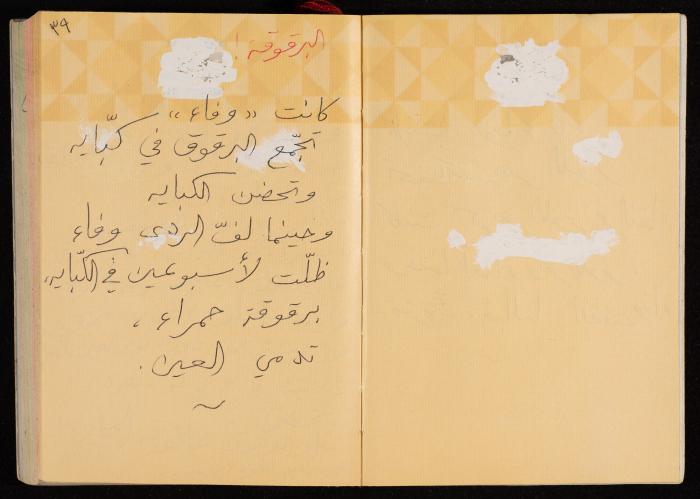 ٣٩
البرقوقة!
كانت «وفاء»
تجّمع البرقوق في كبّايه
وتحضن الكبايه
وحينما لفّ الردى وفاء
ظلّت لأسبوعين في الكبّايه،
برقوقة حمراء،
تدمي العين.